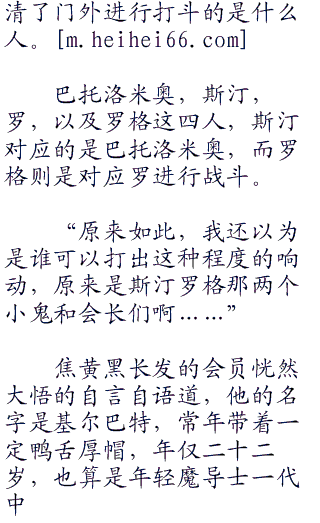 清了门外进行打斗的是什么
人。[m.heihei66.com]
巴托洛米奥，斯汀，
罗，以及罗格这四人，斯汀
对应的是巴托洛米奥，而罗
格则是对应罗进行战斗。
“原来如此，我还以为
是谁可以打出这种程度的响
动，原来是斯汀罗格那两个
小鬼和会长们啊……”
焦黄黑长发的会员恍然
大悟的自言自语道，他的名
字是基尔巴特，常年带着一
定鸭舌厚帽，年仅二十二
岁，也算是年轻魔导士一代
中